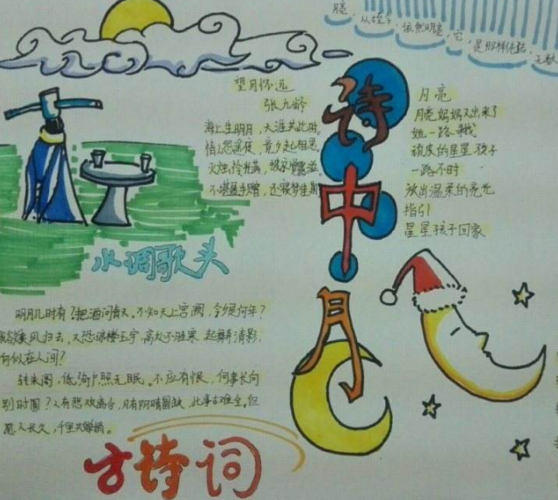 月是，从
依然明亮，它，是那样
望月怀远
张九龄
海上生明月，天涯共此时。
情人怨遥夜，竟夕起相思。
灭烛怜光满，披衣觉露滋。
不堪盈手赠，还寝梦佳期
诗中月
月亮
月亮妈妈又出来了
她一路 寻找
顽皮的星星孩子
一路不时
放出温柔的亮光
指引
星星孩子回家
水调歌头
明月几时有？把酒问青天。不知天上宫阙，今夕是何年？
乘风归去，又恐琼楼玉宇，高处不胜寒 起舞弄清影，
何似在人间？
转朱阁，低绮户，照无眠。不应有恨，何事长向
别时圆？人有悲欢离合，月有阴晴圆缺，此事古难全。但
愿人长久，千里共婵娟。
古诗词